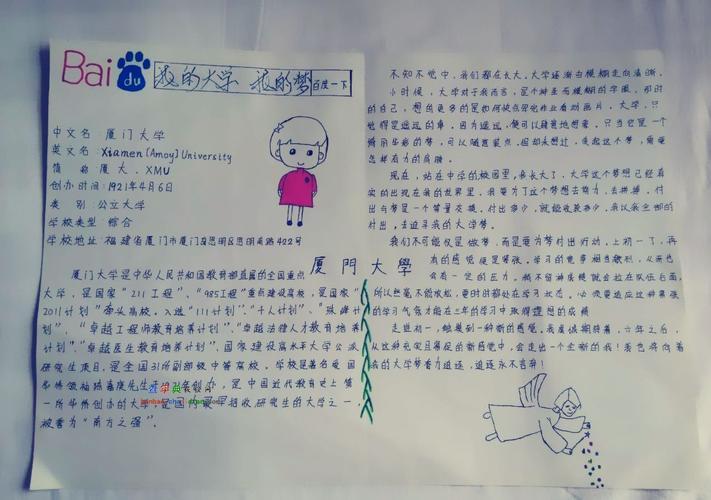 Bai du 我的大学 我的梦 百度一下
中文名:厦门大学
英文名:Xiamen (Amoy) University
简 称:厦大、XMU
创办时间:1921年4月6日
类 别:公立大学
学校类型:综合
学校地址:福建省厦门市厦门岛思明区思明南路422号
厦門大學
厦门大学是中华人民共和国教育部直属的全国重点
大学,是国家“211工程”、“985工程”重点建设高校,是国家“
2011计划”牵头高校。入选“111计划”、“千人计划”、“珠峰计
划”、“卓越工程师教育培养计划”、“卓越法律人才教育培养
计划”、“卓越医生教育培养计划”、国家建设高水平大学公派
研究生项目,是全国31所副部级中管高校。学校是著名爱国
华侨领袖陈嘉庚先生 创办,是中国近代教育史上第
一所华侨创办的大学,是国内最早招收研究生的大学之一,
被誉为“南方之强”。
不知不觉中,我们都在长大。大学逐渐由模糊走向清晰。
小时候,大学对于我而言,是个神圣而模糊的字眼。那时
的自己,想的更多的是如何快点写完作业看动画片。大学,只
觉得是遥远的事。因为遥远,便可以随意地想象。只当它是一个
绚丽华彩的梦,可以随意装点。但却未想过,求起这个梦,需要
怎样有力的肩膀。
现在,站在中学的校园里,我长大了。大学这个梦想已经真
实的出现在我的世界里。我要为了这个梦想去努力,去拼搏。付
出与梦是一个等量交换。付出多少,就能收获多少。我以我全部的
付出,去追寻我的大学梦。
我们不可能仅是做梦,而是要为梦付出行动。上初一了,再
有的感觉便是紧张。学习的竞争相当激烈,从而也
会有一定的压力。稍不留神成绩就会拉在队伍后面。
所以丝毫不能放松,要时时刻处在学习状态。必须要适应这种紧张
的学习气氛才能在三年的学习中取得理想的成绩
走进初一,触摸到一种新的感觉。我真诚期待着,六年之后,
从这种充实且忙碌的新感觉中,会走出一个全新的我!我也将向着
我的大学梦奋力追逐,追逐永不言弃!